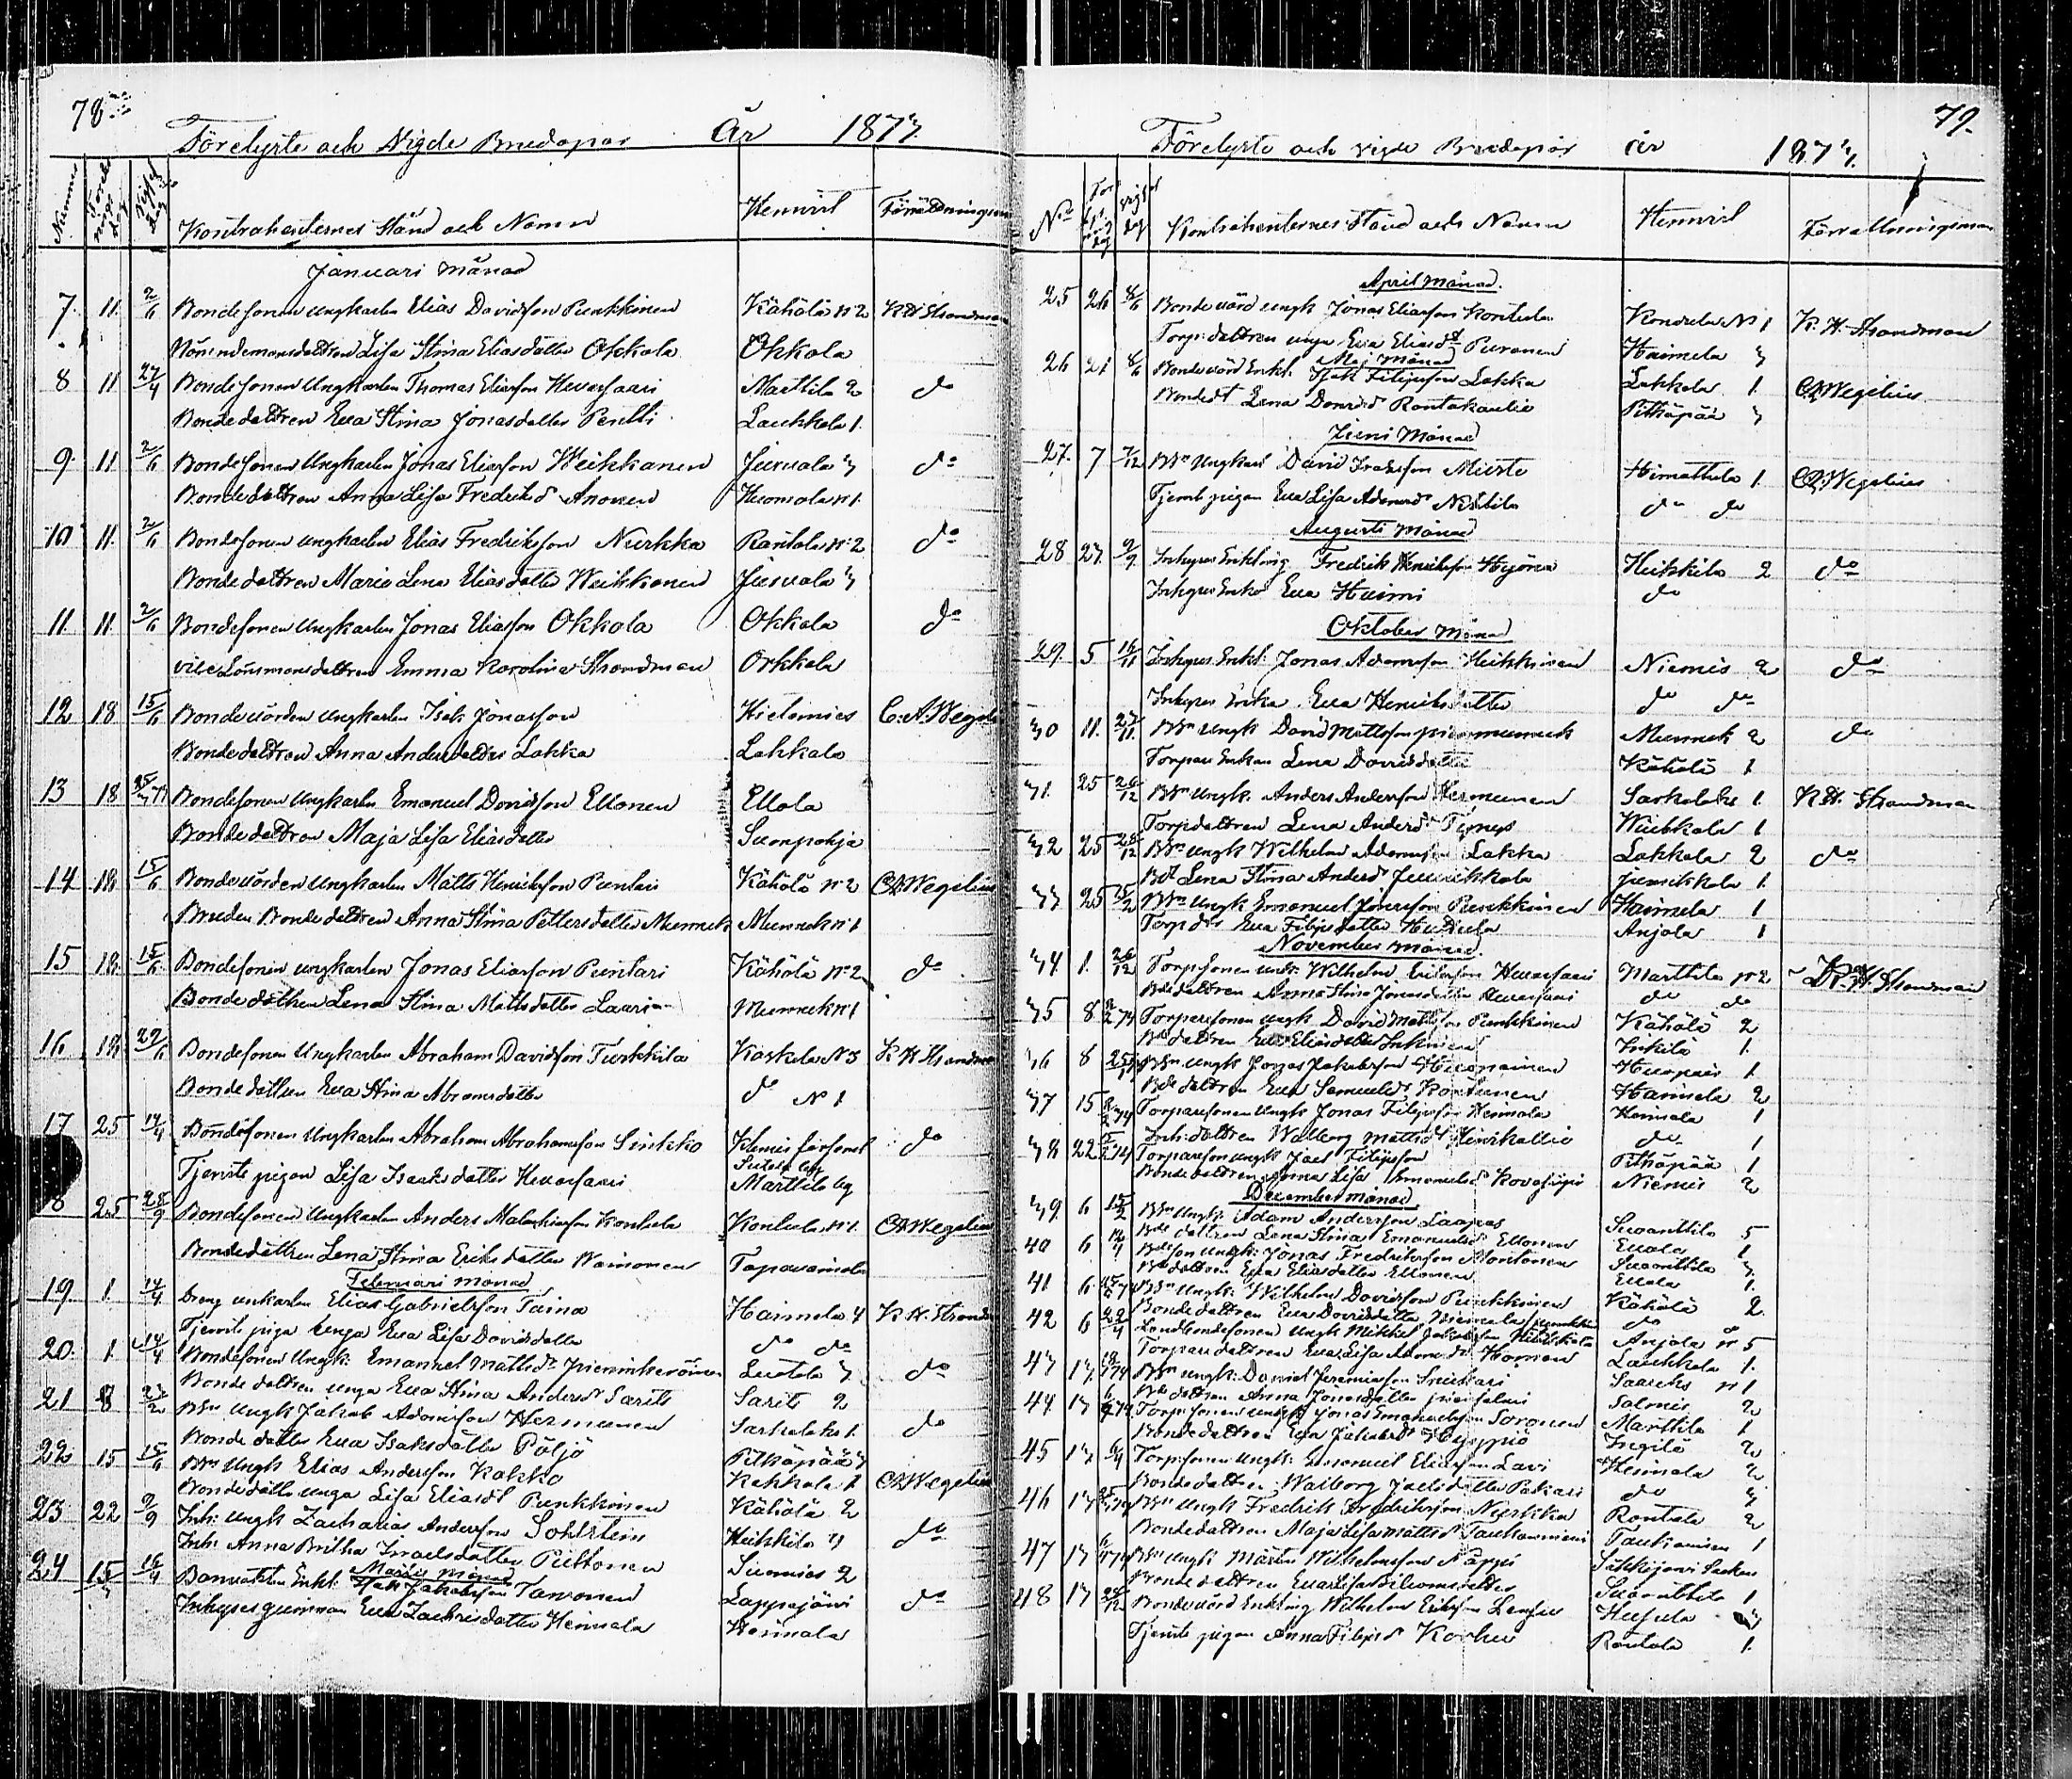 78
Förelyste och Vigde Brudapar År 1873.
Nummer Vigsel dag Kontrahenternes Stånd och Namn Hemvist Förrättningsm
Januari Månad
7. 11. 2/6 Bondesonen ungkarlen Elias Davidsson Punkkinen Kähölä No 2 K H Strandman
Nämndemansdottren Lisa Stina Eliasdotter Okkola Okkola
8 11 27/4 Bondesonen Ungkarlen Thomas Eliasson Heversaari Marttila 2 do
Bondedottren Eva Stina Jonasdotter Pentti Laukkala 1.
9. 11 2/6 Bondesonen Ungkarlen Jonas Eliasson Weikkanen Jusuala 3 do
Bondedottren Anna Lisa Fredriksd Anonen Kuomola N 1.
10 11. 2/6 Bondesonen ungkarlen Elias Fredriksson Nurkka Rantala No 2 do
Bondedottren Maria Lena Eliasdotter Weikkanen Jusuala 3
11. 11. 2/6 Bondesonen Ungkarlen Jonas Eliasson Okkola Okkola do
vice Länsmansdottren Emma Karolina Strandman Okkola
12 18 15/6 Bondevärden Ungkarlen Isak Jonasson Kielomies C. A. Wegel
Bondedottren Anna Andersdotter Lakka Lakkala
13 18 Bondesonen Ungkarlen Emanuel Davidsson Ellonen Ellola
Bondedottren Maja Lisa Eliasdotter Suonpohja
14 18 15/6 Bondevärden Ungkarlen Matts Henriksson Puntari Kähölä No 2 CA Wegelius
Bruden Bondedottren Anna Stina Pettersdotter Munnuk Munnuk N 1
15 18. 15/6 Bondesonen ungkarlen Jonas Eliasson Puntari Kähölä No 2 do
Bondedottren Lena Stina Mattsdotter Laari Munnuk N 1
16 18 29/6 Bondesonen Ungkarlen Abraham Davidsson Turkkila Koskela N 3 K H Strandm
Bondedottren Eva Stina Abramsdotter do N 1.
17 25 14/4 Bondesonen Ungkarlen Abraham Abrahamsson Sinkko Klemis församl do
Sutela by
Tjenstepigan Lisa Isaksdotter Heversaari Marttila by
18 25 28/9 Bondesonen Ungkarlen Anders Malakiasson Kontula Kontula N 1. CA Wegelius
Bondedottren Lena Stina Eriksdotter Wainonen Tapavainola
Februari månad
19. 1. 14/4 Dreng unkarlen Elias Gabrielsson Taina Haimila 4 K H. Strand
Tjenste piga unga Eva Lisa Davidsdotter do do
20. 1. 14/4 Bondesonen Ungk: Emanuel Mattsd Prieninkeröinen Luotola 3 do
Bondedottren unga Eva Stina Andersd Sarits Sarits 2
21 8 Bsn Ungk Jakob Adamsson Hermunen Sarkalaks 1. do
Bondedotter Eva Isaksdotter Pöljö Pitkäpää 3
22 15 15/6 Bsn Ungk Elias Andersson Kakko Kakkola 1 CA Wegelius
Bondedotter unga Lisa Eliasdr Punkkinen Kähölä 2
23. 22 9/9 Inh: ungk Zacharias Andersson Sohlsten Heikkila 3 do
Inh: Anna Britha Israelsdotter Pittonen Suomies 2
Martii Månad
24 15 16/4 Banvakten Enkl: Isak Jakobsson Tanonen Lappajärvi do
Inhyses quinnan Eva Zachrisdotter Heimala Heimala
79.
Förelyste och vigde Brudapar år 1873.
No vigs dag Kontrahenternes Stånd och Namn Hemvist Förrattningsman
April Månad.
25 26 8/6 Bonde värd ungk Jonas Eliasson Kontula Kondula N 1 K. H. Strandman
Torp. dottren unga Eva Eliasdr Puronen Haimila 3
Maj Månad
26 21 8/6 Bondevärd Enkl. Isak Filipsson Lakka Lakkala 1. CA Wegelius
Bondedt Lena Davidsd Rantakaulio Pitkäpää 3
Juni Månad
27. 7 7/12 Bsn Ungkarl David Isaksson Mieste Himottula 1. CA Wegelius
Tjenstpigan Eva Lisa Adamsd Nikkila do do
Augusti Månad
28 27. 9/9 Inhyses Enkling Fredrik Henriksson Hyönä Heikkila 2 do
Inhyses Enka Eva Haimi do
Oktober Månad
29. 5 16/11 Inhyses Enkl: Jonas Adamsson Heikkinen Niemis 2 do
Inhyses Enka Eva Henriksdotter do do
30 11. 23/11. Bsn Ungk David Mattsson Munnuk 2 do
Torpare Enkan Lena Davidsdotter Kähölä 1
31. 25 26/12 Bsn Ungk. Anders Andersson Hermunen Sarkalaks 1. K H. Strandman
Torpdottren Lena Andersd Tymys Wiukkala 1
32 25 28/12 Bsn ungk Wilhelm Adamsson Lakka Lakkala 2 do
Bdt Lena Stina Andersd Junnikkala Junnikkala 1.
33 25 Bsn Ungk Emanuel Jonasson Punkkinen Haimila 1
Torpdr Eva Filipsdotter Anjala 1
November månad.
34. 1. 26/12 Torpsonen undr. Wilhelm Eriksson Heversaari Marttila No 2 K. H. Strandman
Bdedottren Anna Stina Jonasdotter Heversaari do do
35 8 Torparesonen ungk David Mattsson Punkkinen Kähölä 2
Bdedottren Eva Eliasdotter Inkinen Inkilä 1.
36 8 Bsn Ungk Jonas Jakobsson Huomainen 1.
Bdedottren Eva Samuelsd Konttinen Haimila 2
37 15 Torparesonen Ungk Jonas Filipsson Heimala Heimala 1
Inh: dottren Walborg Mattsd Hiirikallio do 1
38 22 Torparesson ungk Joel Filipsson Pitkäpää 1
Bondedottren Anna Lisa Emanuelsd Niemis 2
December månad
39. 6 Bsn Ungk: Adam Andersson Laapas Suoanttila 5
Bdedottren Lena Stina Emanuelsd Ellonen Evala 1
40 6 Bdeson ungk: Jonas Fredriksson Montonen Suoanttila 3.
Bdedottren Eva Eliasdotter Ellonen Evala 1.
41 6. Bsn Ungk: Wilhelm Davidsson Punkkinen Kähölä 2.
Bondedottren Eva Davidsdotter do
42 6 22/4 Landbondesonen Ungk Mikkel Jakobsson Anjala No 5
Torparedottren Eva Lisa Adamsdr Homen Laukkala 1.
43 13. Bsn Ungk: Daniel Jeremiasson Sinkkari N 1
Bdedottren Anna Jonasdotter Salmis 2
44 13 Torpsonen ungk Jonas Emanuelsson Soronen Marttila 1
Bondedottren Eva Jakobsd Ingilä 2
45 13 6/4 Torpsonen Ungk: Emanuel Eliasson Lavi Heimala 2
Bondedottren Walborg Joelsdotter Pakari do 3
46 13 Bsn Ungk Fredrik Fredriksson Nurkka Rantala 2
Bondedottren Maja Lisa Mattsd Taukaniemi 1
47 13 Bsn Ungk Mårten Wilhelmsson Näppi Säkkijärvi Socken
Bondedottren Eva Lisa Suoanttila 1
48 13 28/12 Bondevärd Enkling Wilhelm Eriksson Husula 3
Tjenste pigan Anna Filipsd Korhu Rantala 1.